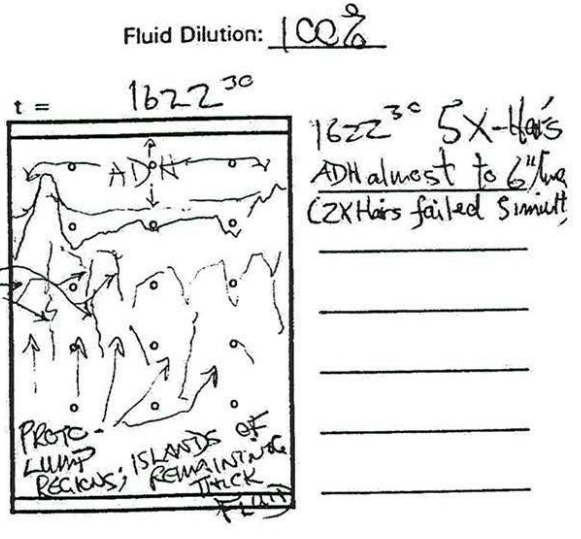 Fluid Dilution: 100%
t = 1622³⁰
1622³⁰ 5X-Hairs
ADH almost to 6" line
(2X Hairs failed Simult
ADH
PROTO-
LUMP
REGIONS; ISLANDS OF
REMAINING
THICK
FLUID